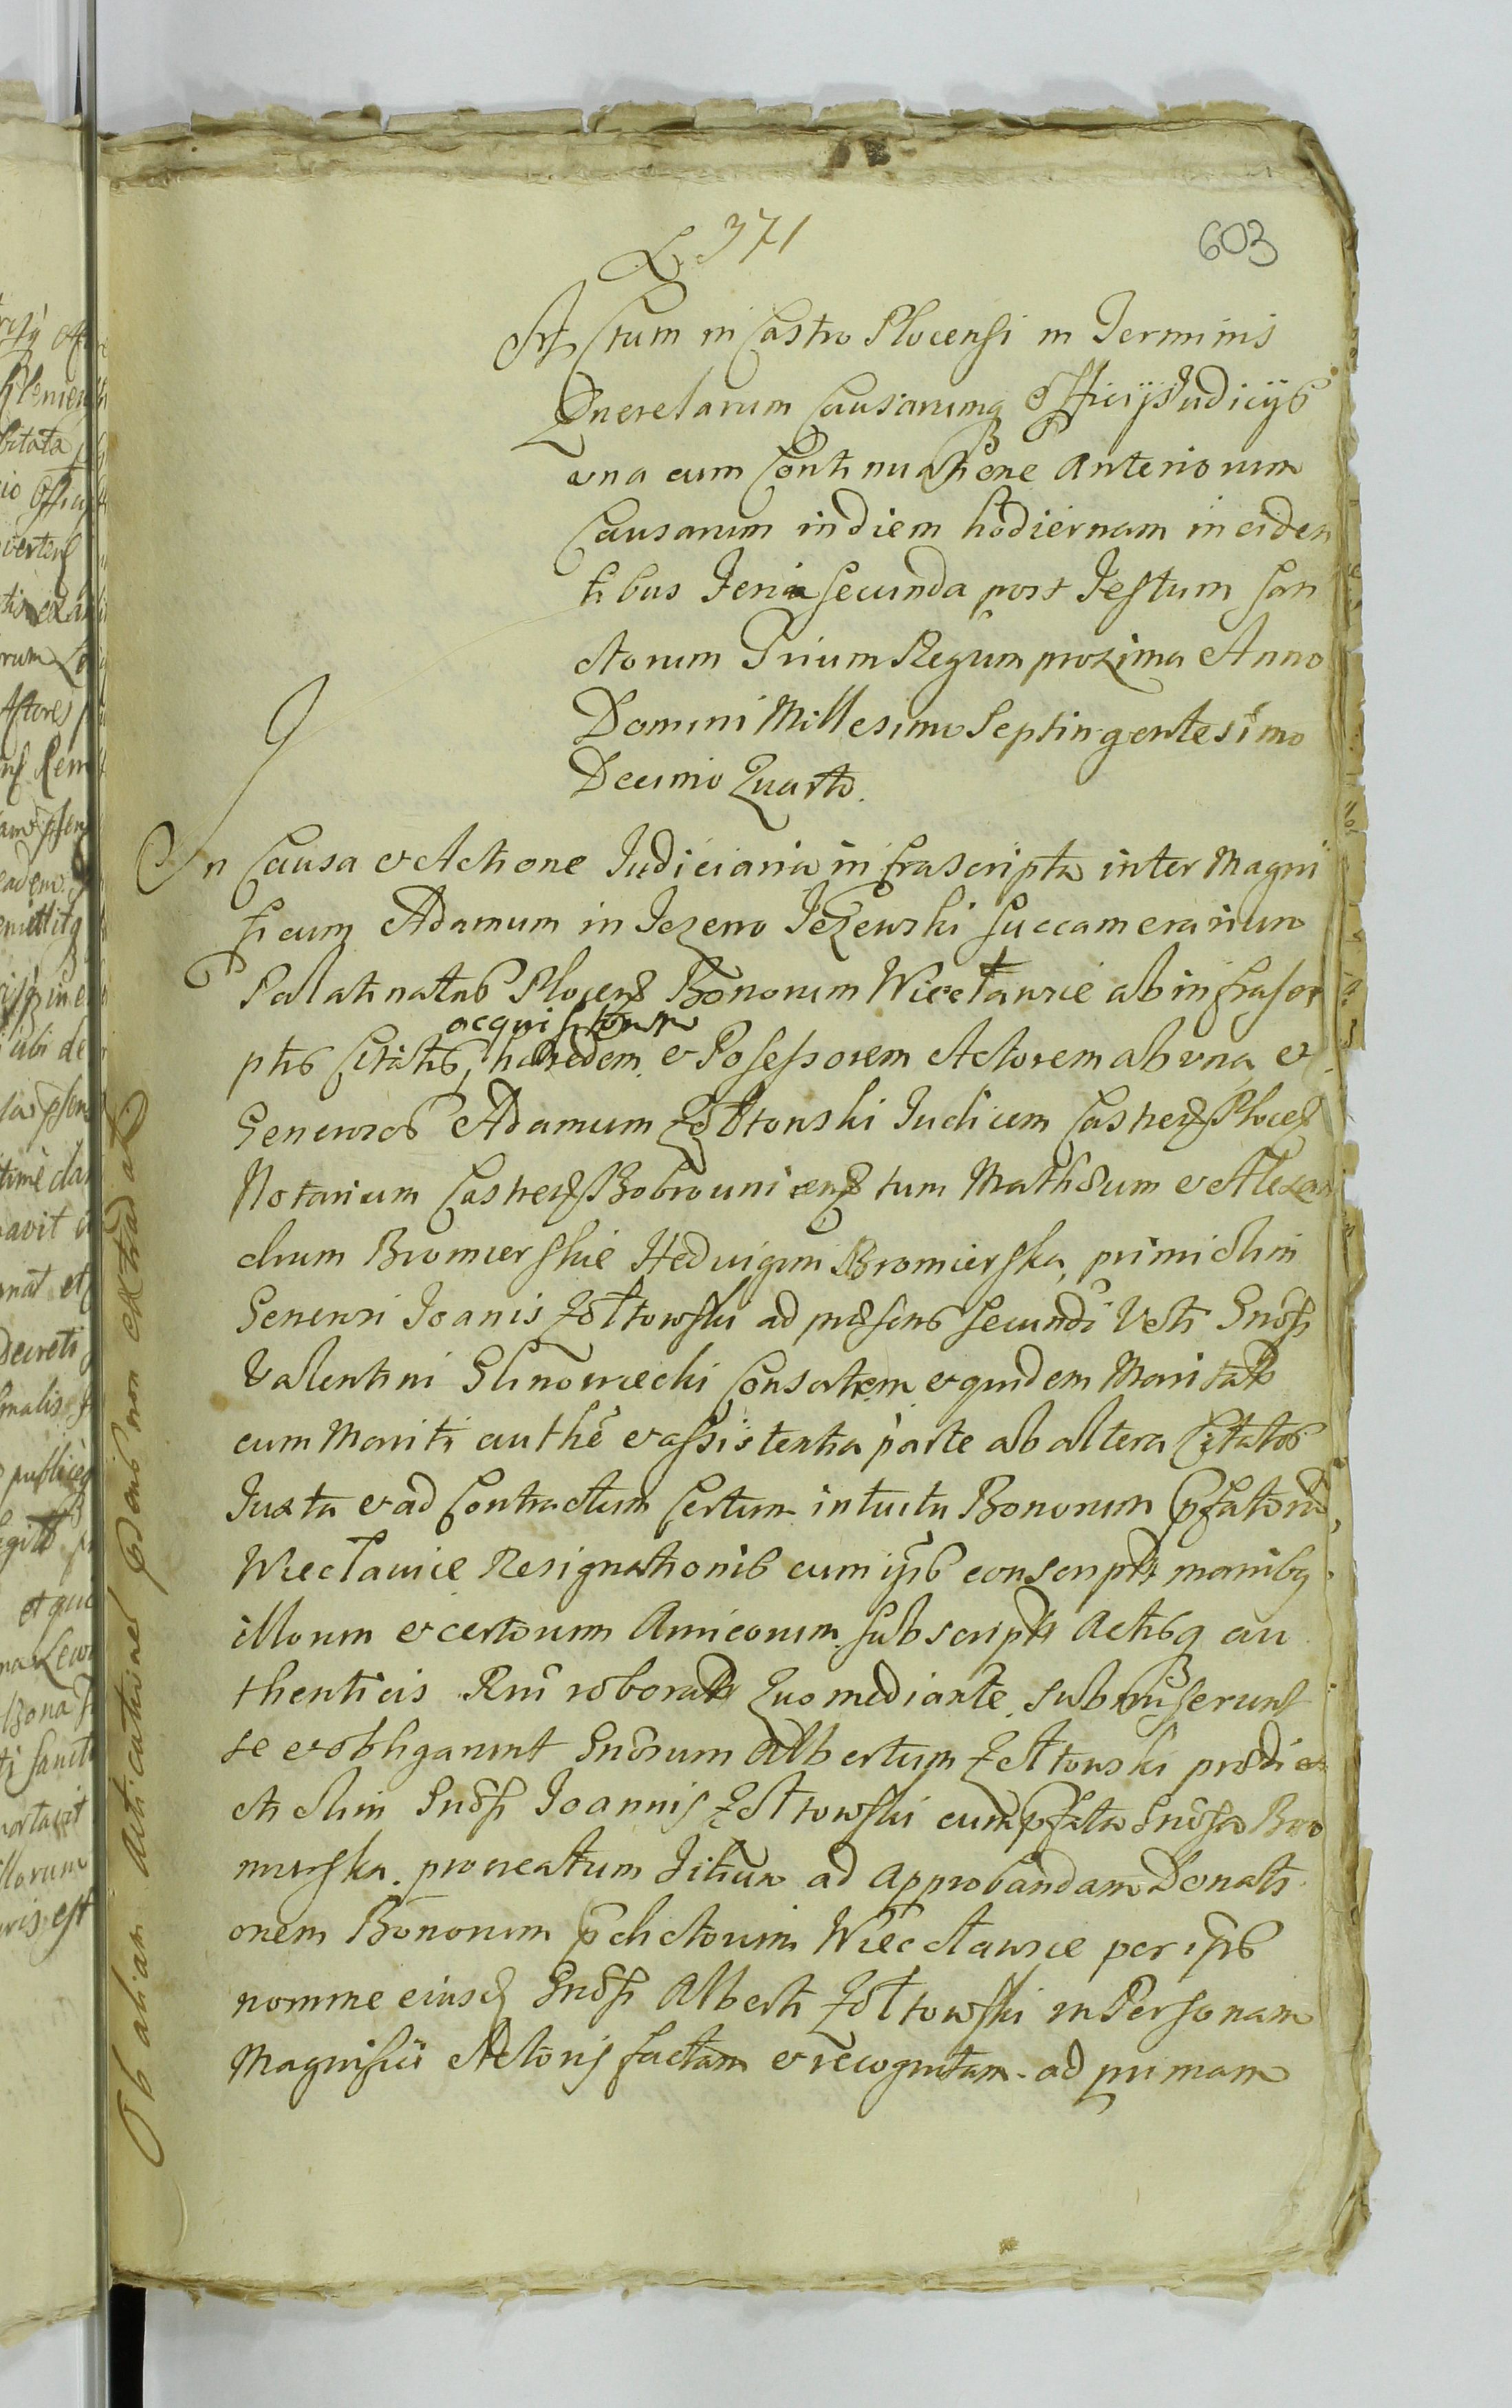 L. 371
603
Actum in Castro Plocensi in Terminis
Querelarum Causarumq Officij Judicijs
una cum Continuatione Anteriorum
Causarum in diem hodiernam inciden
tibus Feria Secunda post Festum San
ctorum Trium Regum proxima Anno
Domini Millesimo Septingentesimo
Decimo Quarto.
In Causa et Actione Judiciaria infrascripta inter Magni
ficum Adamum in Jezewo Jezewski Succamerarium
Palatinatus Plocens Bonorum Wiecławice ab infrascr
acquisitorum
ptis Citatis, haeredem et Possessorem Actorem ab una, et
Generosos Adamum Zołtowski Judicem Castren Plocen
Notarium Castren Bobrownicens tum Mathaeum et Alexan
drum Bromierskie Hedvigim Bromierska, primi olim
Generosi Joanis Zołtowski ad praesens secundi Voti Gnosi
Valentini Glinowiecki Consortem et quidem Maritatam
cum Mariti authe et assistentia parte ab altera Citatos
Juxta et ad Contractum Certum intuitu Bonorum pfatorum
Wiecławice Resignationis cum ipsis conscriptum manibq
illorum et certorum Amicorum subscriptum Actisq au
thenticis Rni roboratum Quo mediante submiserunt
se et obligarunt Gnosum Albertum Zołtowski praedi
cti olim Gnosi Joannis Zołtowski cum pfata Gnosa Bro
mierska procreatum Filium ad approbandam Donati
onem Bonorum pdictorum Wiecławice per ipsos
nomine eiusd Gnosi Alberti Zołtowski in Personam
Magnifici Actoris factam et recognitam ad primam
Ob aliam Acticationem psens non extradatur